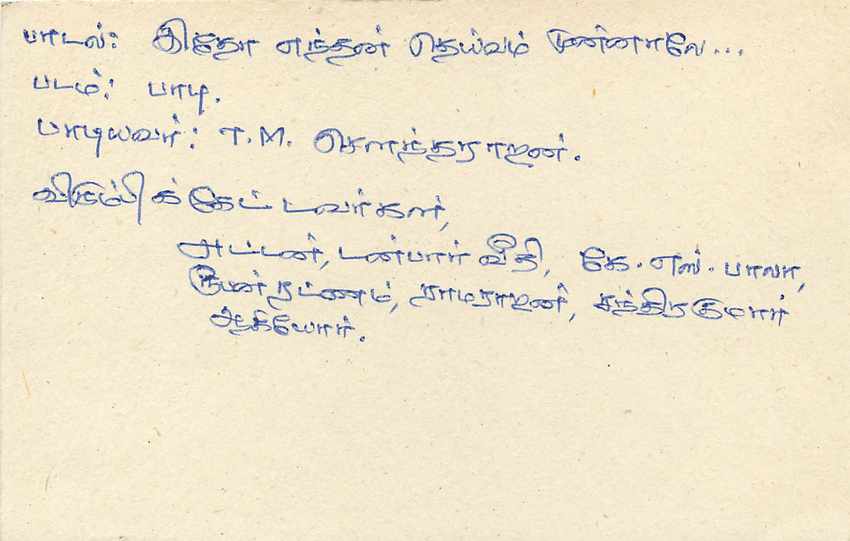 பாடல்: இதோ எந்தன் தெய்வம் முன்னாலே...
படம்: பாடி.
பாடியவர்: T.M. சௌந்தரராஜன்.
விரும்பிக் கேட்டவர்கள்,
அட்டன், டன்பார் வீதி, கே.எஸ்.பாலா,
ரட்ணம், ராமராஜன், சந்திரகுமார்
ஆகியோர்.